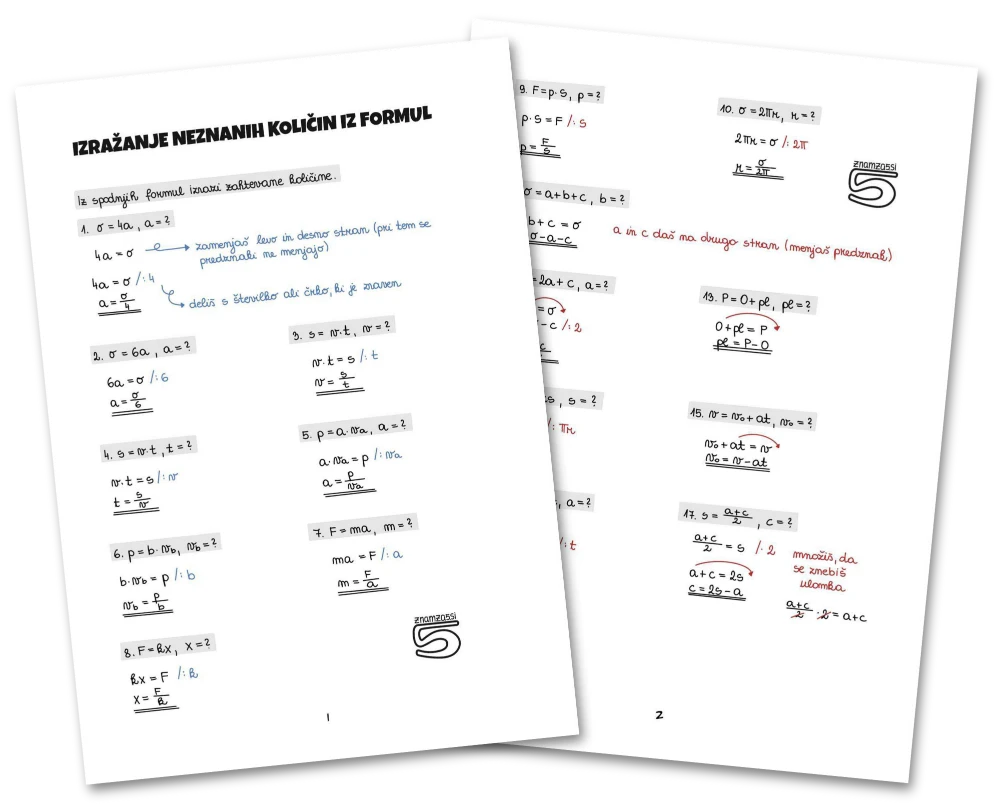 IZRAŽANJE NEZNANIH KOLIČIN IZ FORMUL
Iz spodnjih formul izrazi zahtevane količine.
1. σ = 4a, a = ?
4a = σ
zamenjaš levo in desno stran (pri tem se
predznaki ne menjajo)
4a = σ /: 4
a = σ/4
deliš s številko ali črko, ki je zraven
2. σ = 6a, a = ?
6a = σ /: 6
a = σ/6
3. s = v·t, v = ?
v·t = s /: t
v = s/t
4. s = v·t, t = ?
v·t = s /: v
t = s/v
5. p = a·va, a = ?
a·va = p /: va
a = p/va
6. p = b·vb, vb = ?
b·vb = p /: b
vb = p/b
7. F = ma, m = ?
ma = F /: a
m = F/a
8. F = kx, x = ?
kx = F /: k
x = F/k
znamza5si
5
1
9. F = p·s, p = ?
p·s = F /: s
p = F/s
10. σ = 2πr, r = ?
2πr = σ /: 2π
r = σ/2π
znamza5si
5
σ = a+b+c, b = ?
b+c = σ
σ-a-c
a in c daš na drugo stran (menjaš predznak)
=2a+c, a = ?
= σ
-c /: 2
c
13. P = O+pl, pl = ?
O+pl = P
pl = P-O
s, s = ?
/: πr
15. v = v₀+at, v₀ = ?
v₀+at = v
v₀ = v-at
, a = ?
/: t
17. s = a+c/2, c = ?
a+c/2 = s /· 2
množiš, da
se znebiš
ulomka
a+c = 2s
c = 2s-a
a+c/2 · 2 = a+c
2